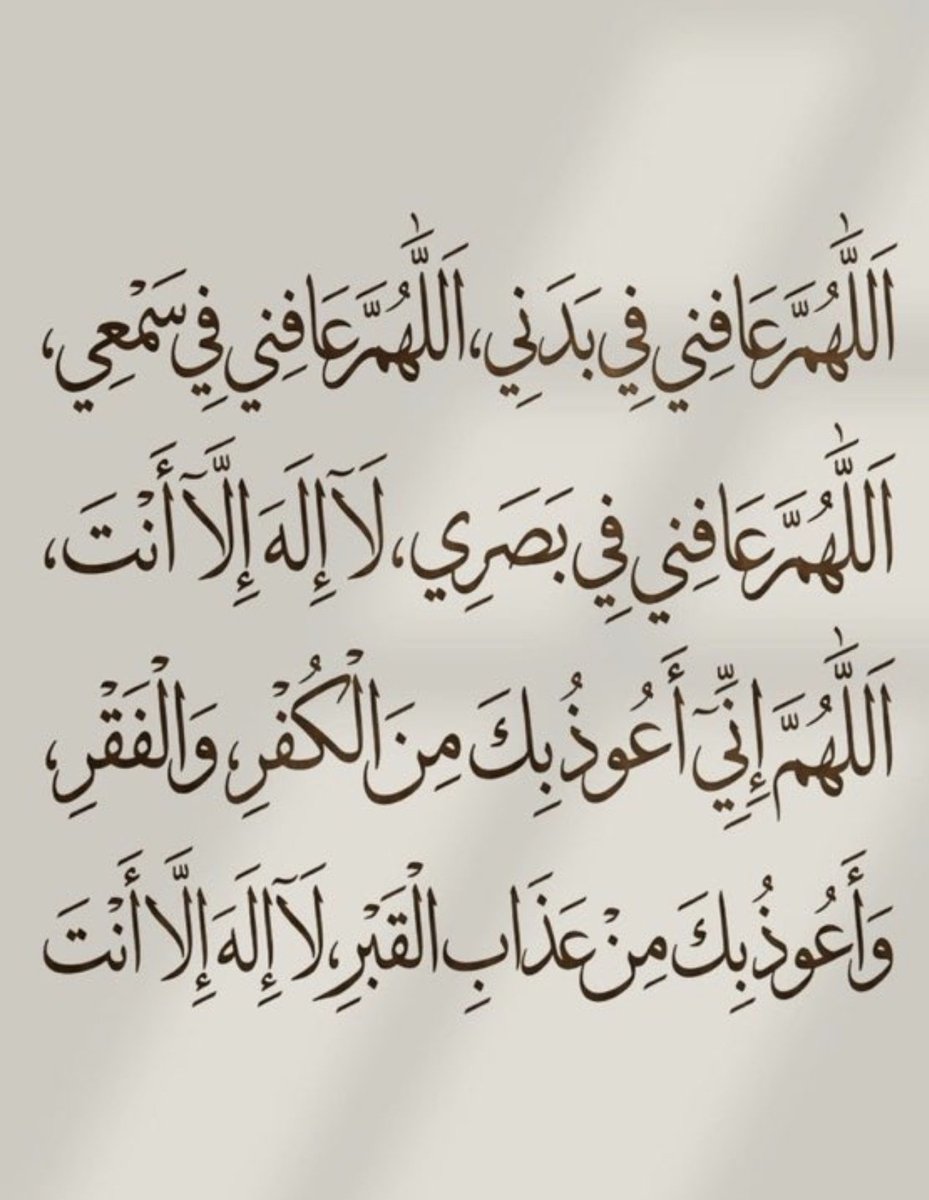 اَللّٰهُمَّ عَافِنِي فِي بَدَنِي، اَللّٰهُمَّ عَافِنِي فِي سَمْعِي،
اَللّٰهُمَّ عَافِنِي فِي بَصَرِي، لَآ إِلَهَ إِلَّآ أَنْتَ،
اَللّٰهُمَّ إِنِّيٓ أَعُوذُ بِكَ مِنَ الْكُفْرِ، وَالْفَقْرِ،
وَأَعُوذُ بِكَ مِنْ عَذَابِ الْقَبْرِ، لَآ إِلَهَ إِلَّا أَنْتَ